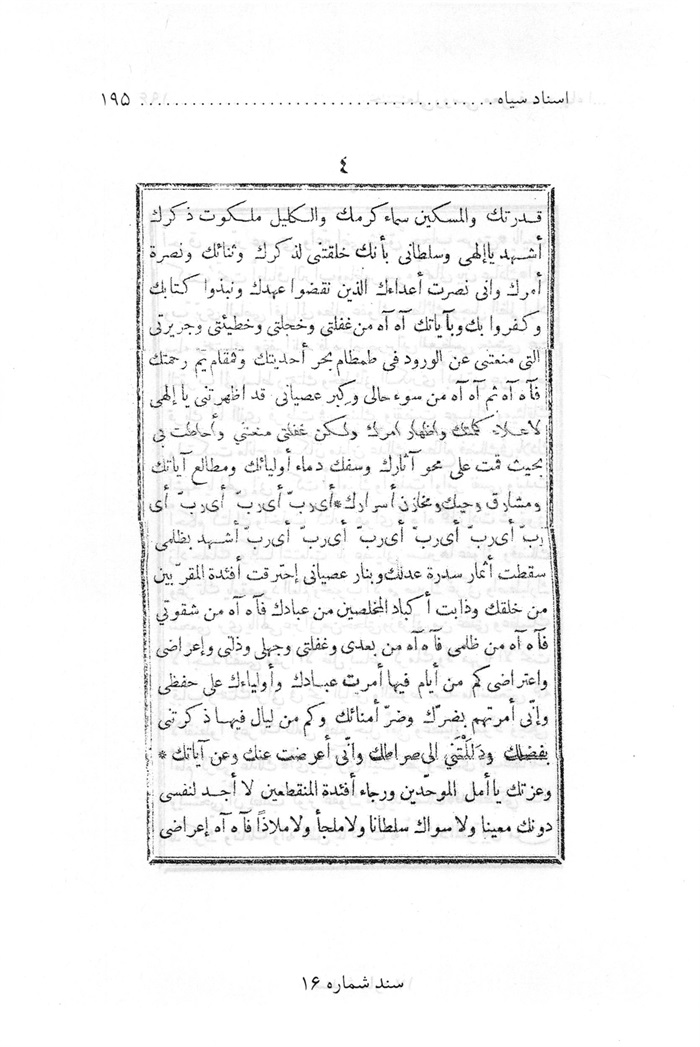 اسناد سیاه ........................................ ۱۹۵
٤
قدرتك والمسكين سماء كرمك والكليل ملكوت ذكرك
أشهد ياإلهى وسلطانى بأنك خلقتنى لذكرك وثنائك ونصرة
أمرك وانى نصرت أعداءك الذين نقضوا عهدك ونبذوا كتابك
وكفروا بك وبآياتك آه آه من غفلتى وخجلتى وخطيئتى وجريرتى
التى منعتنى عن الورود فى طمطام بحر أحديتك وقمقام يم رحمتك
فآه آه ثم آه آه من سوء حالى وكبر عصيانى قد اظهرتنى يا إلهى
لاعلاء كلمتك واظهار امرك ولكن غفلتى منعتنى وأحاطت بى
بحيث قمت على محو آثارك وسفك دماء أوليائك ومطالع آياتك
ومشارق وحيك ومخازن أسرارك * أى ربّ أى ربّ أى ربّ أى
ربّ أى ربّ أى ربّ أى ربّ أى ربّ أى ربّ أشهد بظلمى
سقطت أثمار سدرة عدلك وبنار عصيانى إحترقت أفئدة المقربين
من خلقك وذابت أكباد المخلصين من عبادك فآه آه من شقوتي
فآه آه من ظلمى فآه آه من بعدى وغفلتى وجهلى وذلتى وإعراضى
واعتراضى كم من أيام فيها أمرت عبادك وأولياءك على حفظى
وإنّى أمرتهم بضرّك وضرّ أمنائك وكم من ليال فيها ذكرتنى
بفضلك ودَلَلْتَني الى صراطك وانّى أعرضت عنك وعن آياتك *
وعزتك ياأمل الموحّدين ورجاء أفئدة المنقطعين لا أجد لنفسى
دونك معينا ولا سواك سلطانا ولا ملجأ ولا ملاذًا فآه آه إعراضى
سند شماره ۱۶